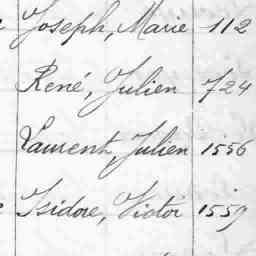 Joseph, Marie 112
René, Julien 724
Laurent, Julien 1556
Isidore, Victor 1559